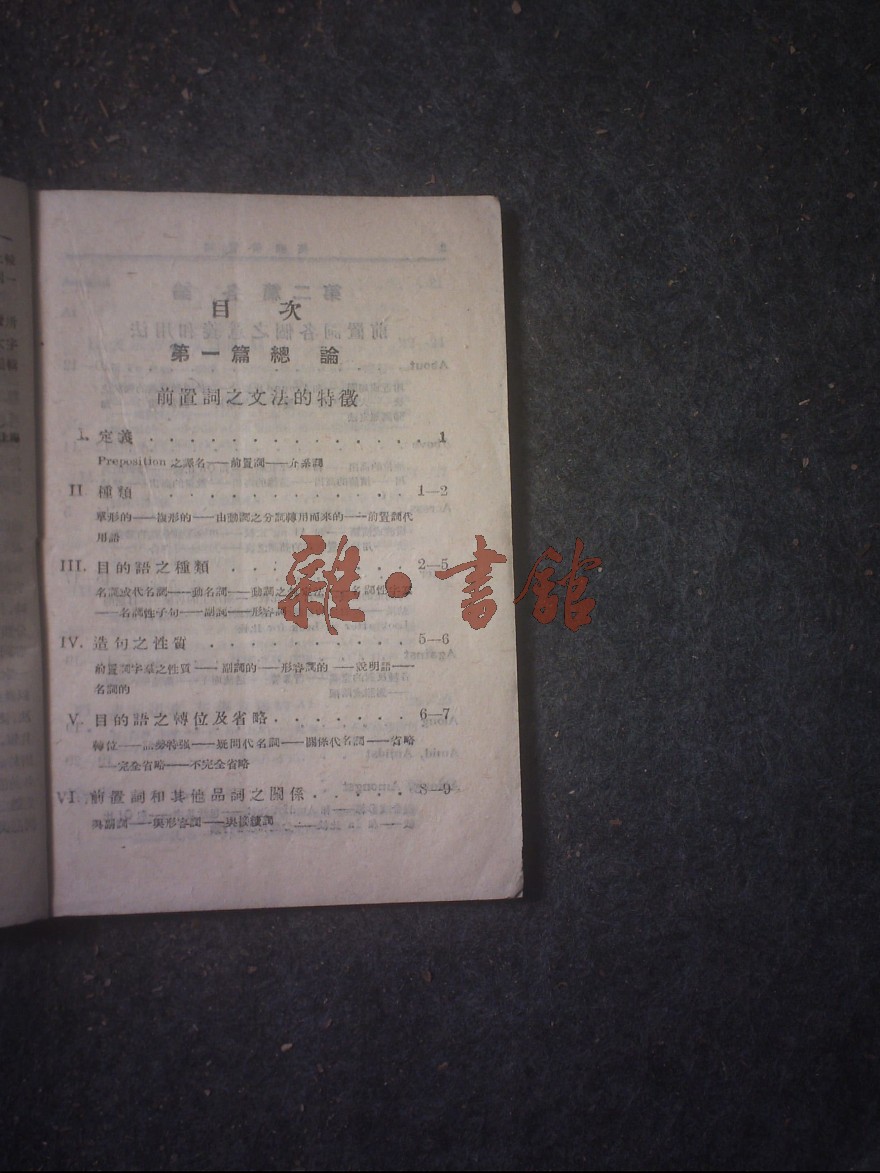 目 次
第一篇 總 論
前置詞之文法的特徵
I. 定義 . . . . . . . . . . . . . . . 1
Preposition 之譯名——前置詞——介系詞
II 種類 . . . . . . . . . . . . . 1—2
單形的——複形的——由動詞之分詞轉用而來的——前置詞代
用語
III. 目的語之種類 . . . . . . . . . 2—5
名詞或代名詞——動名詞——動詞之 名詞性
——名詞性子句——副詞——形容詞
雜·書館
IV. 造句之性質 . . . . . . . . . . 5—6
前置詞字羣之性質——副詞的——形容詞的——說明語——
名詞的
V. 目的語之轉位及省略 . . . . . . . 6—7
轉位——語勢特強——疑問代名詞——關係代名詞——省略
——完全省略——不完全省略
VI 前置詞和其他品詞之關係 . . . . . . 8—9
與副詞——與形容詞——與接續詞